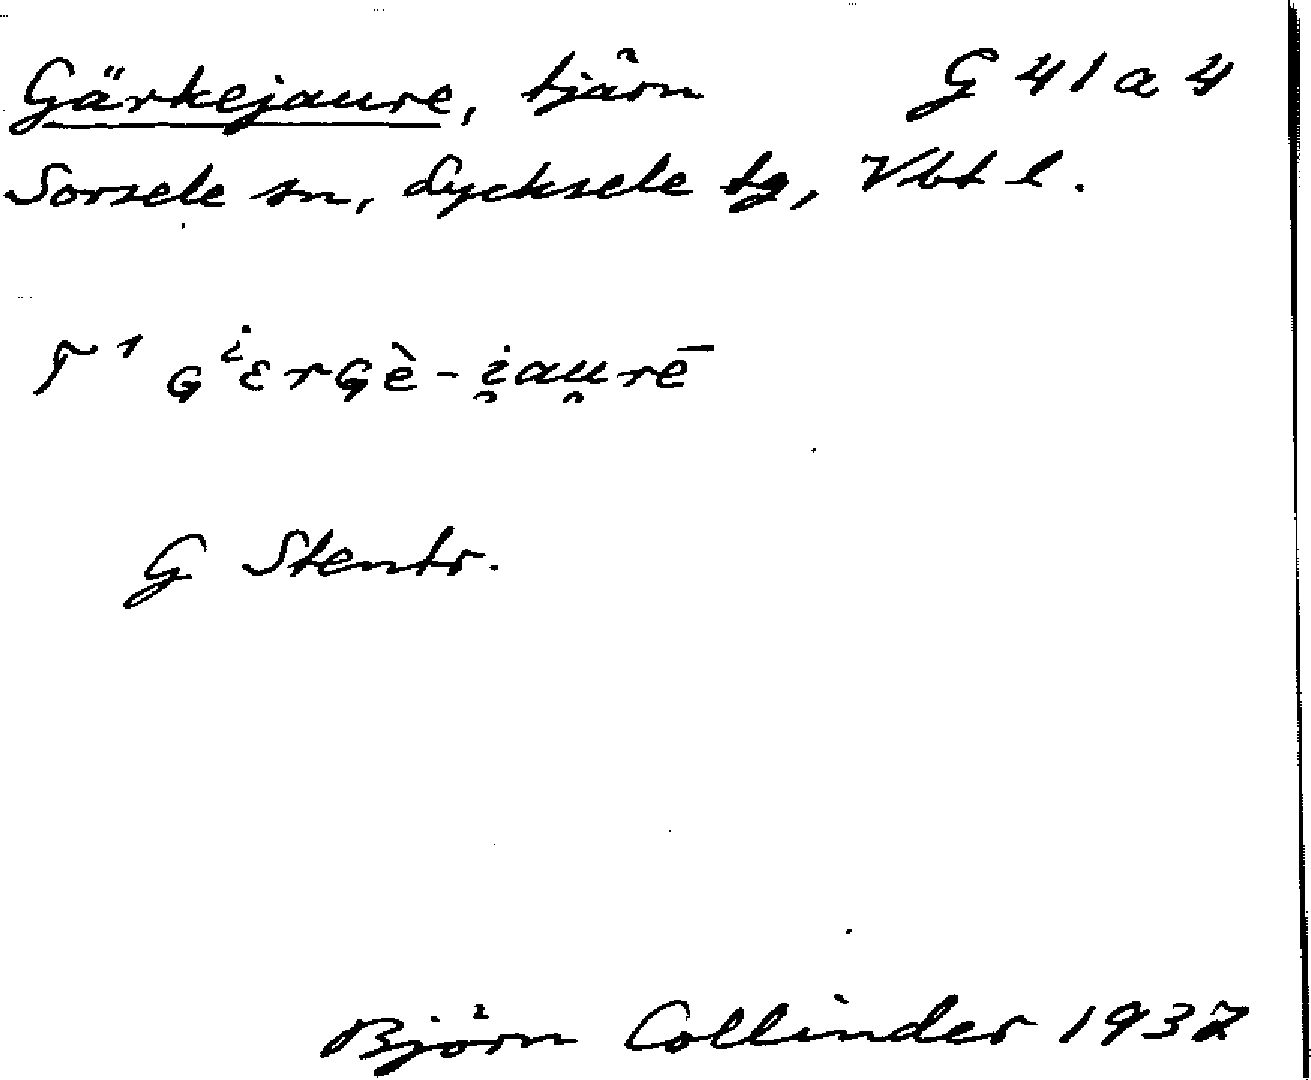 Gärkejaure, tjärn G 41 a 4
Sorsele sn, Lycksele tg, Vbt l.
ɢⁱɛrɢè-i̯au̯rē
G Stentr.
Björn Collinder 1937